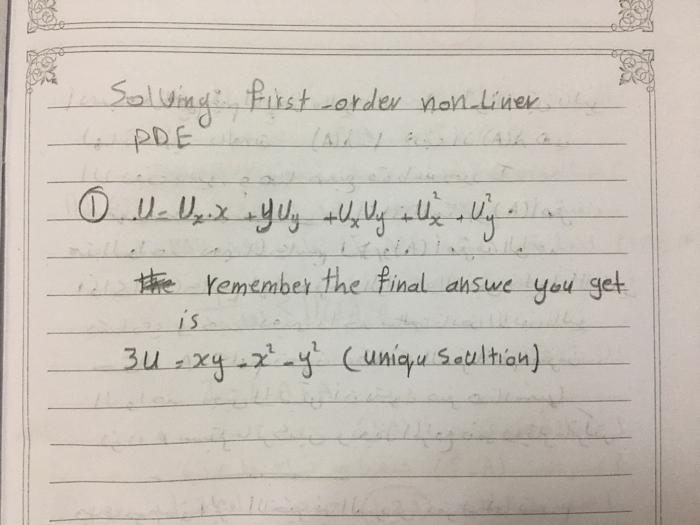 Solving: first-order non-liner
PDE
① U = Uₓ.x + yUy + UₓUy + Uₓ² + Uy².
remember the final answe you get
is
3U = xy - x² - y² (uniqu soultion)